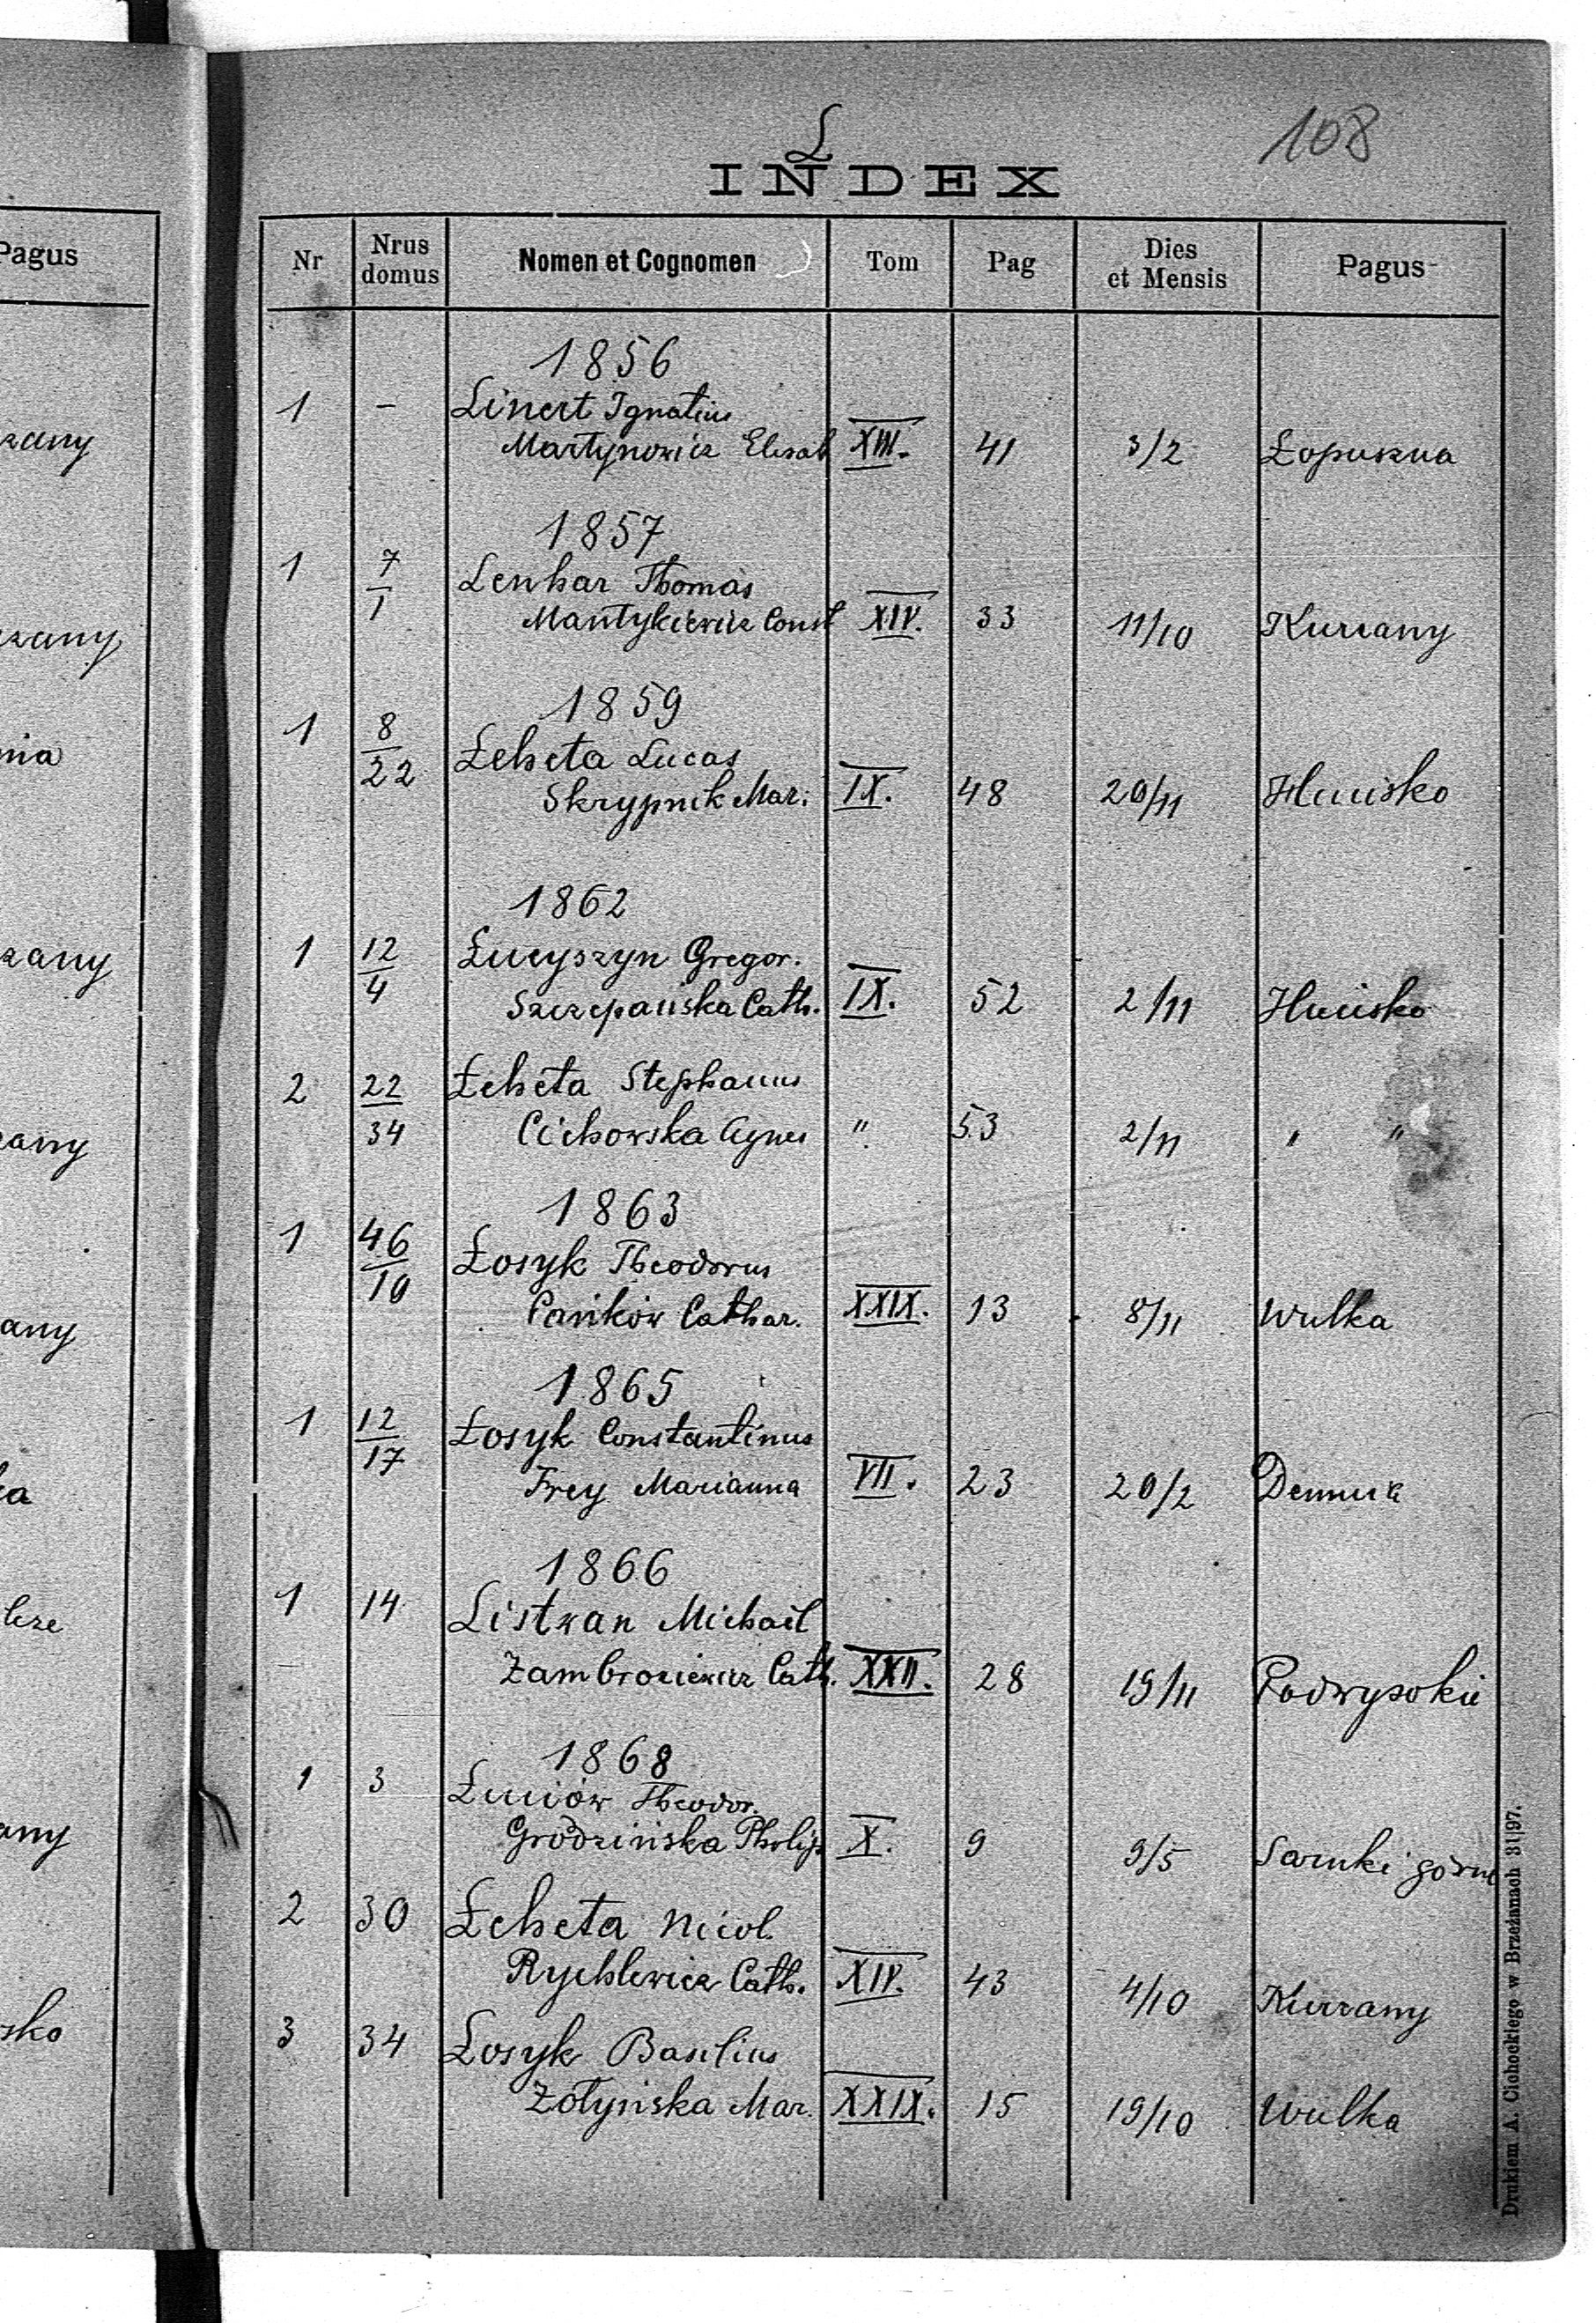 Pagus
zany
zany
nia
zany
zany
any
ka
any
sko
108
Ł
INDEX
Nr Nrus domus Nomen et Cognomen Tom Pag Dies et Mensis Pagus
1856
1 - Linert Ignatius
Martynowicz Elisab XIII. 41 3/2 Łopuszna
1857
1 7/1 Lenhar Thomas
Mantykiewicz Const XIV. 33 11/10 Kurzany
1859
1 8/22 Łeheta Lucas
Skrypnik Mar: IX. 48 20/11 Hucisko
1862
1 12/4 Łucyszyn Gregor.
Szczepańska Cath. IX. 52 2/11 Hucisko
2 22/34 Łeheta Stephanus
Cichowska Agnes " 53 2/11 " "
1863
1 46/10 Łosyk Theodorus
Pańków Cathar. XXIX. 13 8/11 Wulka
1865
1 12/17 Łosyk Constantinus
Frey Marianna VII. 23 20/2 Demnia
1866
1 14 Listwan Michael
Zambroziewicz Cath. XXII. 28 19/11 Podwysokie
1868
1 3 Łuciów Theodor.
Grodzińska Philip X. 9 9/5 Sarnki górne
2 30 Łeheta Nicol.
Rychlewicz Cath. XIV. 43 4/10 Kurzany
3 34 Łosyk Basilius
Żołyńska Mar. XXIX. 15 19/10 Wulka
Drukiem A. Cichockiego w Brzeżanach 31|97.